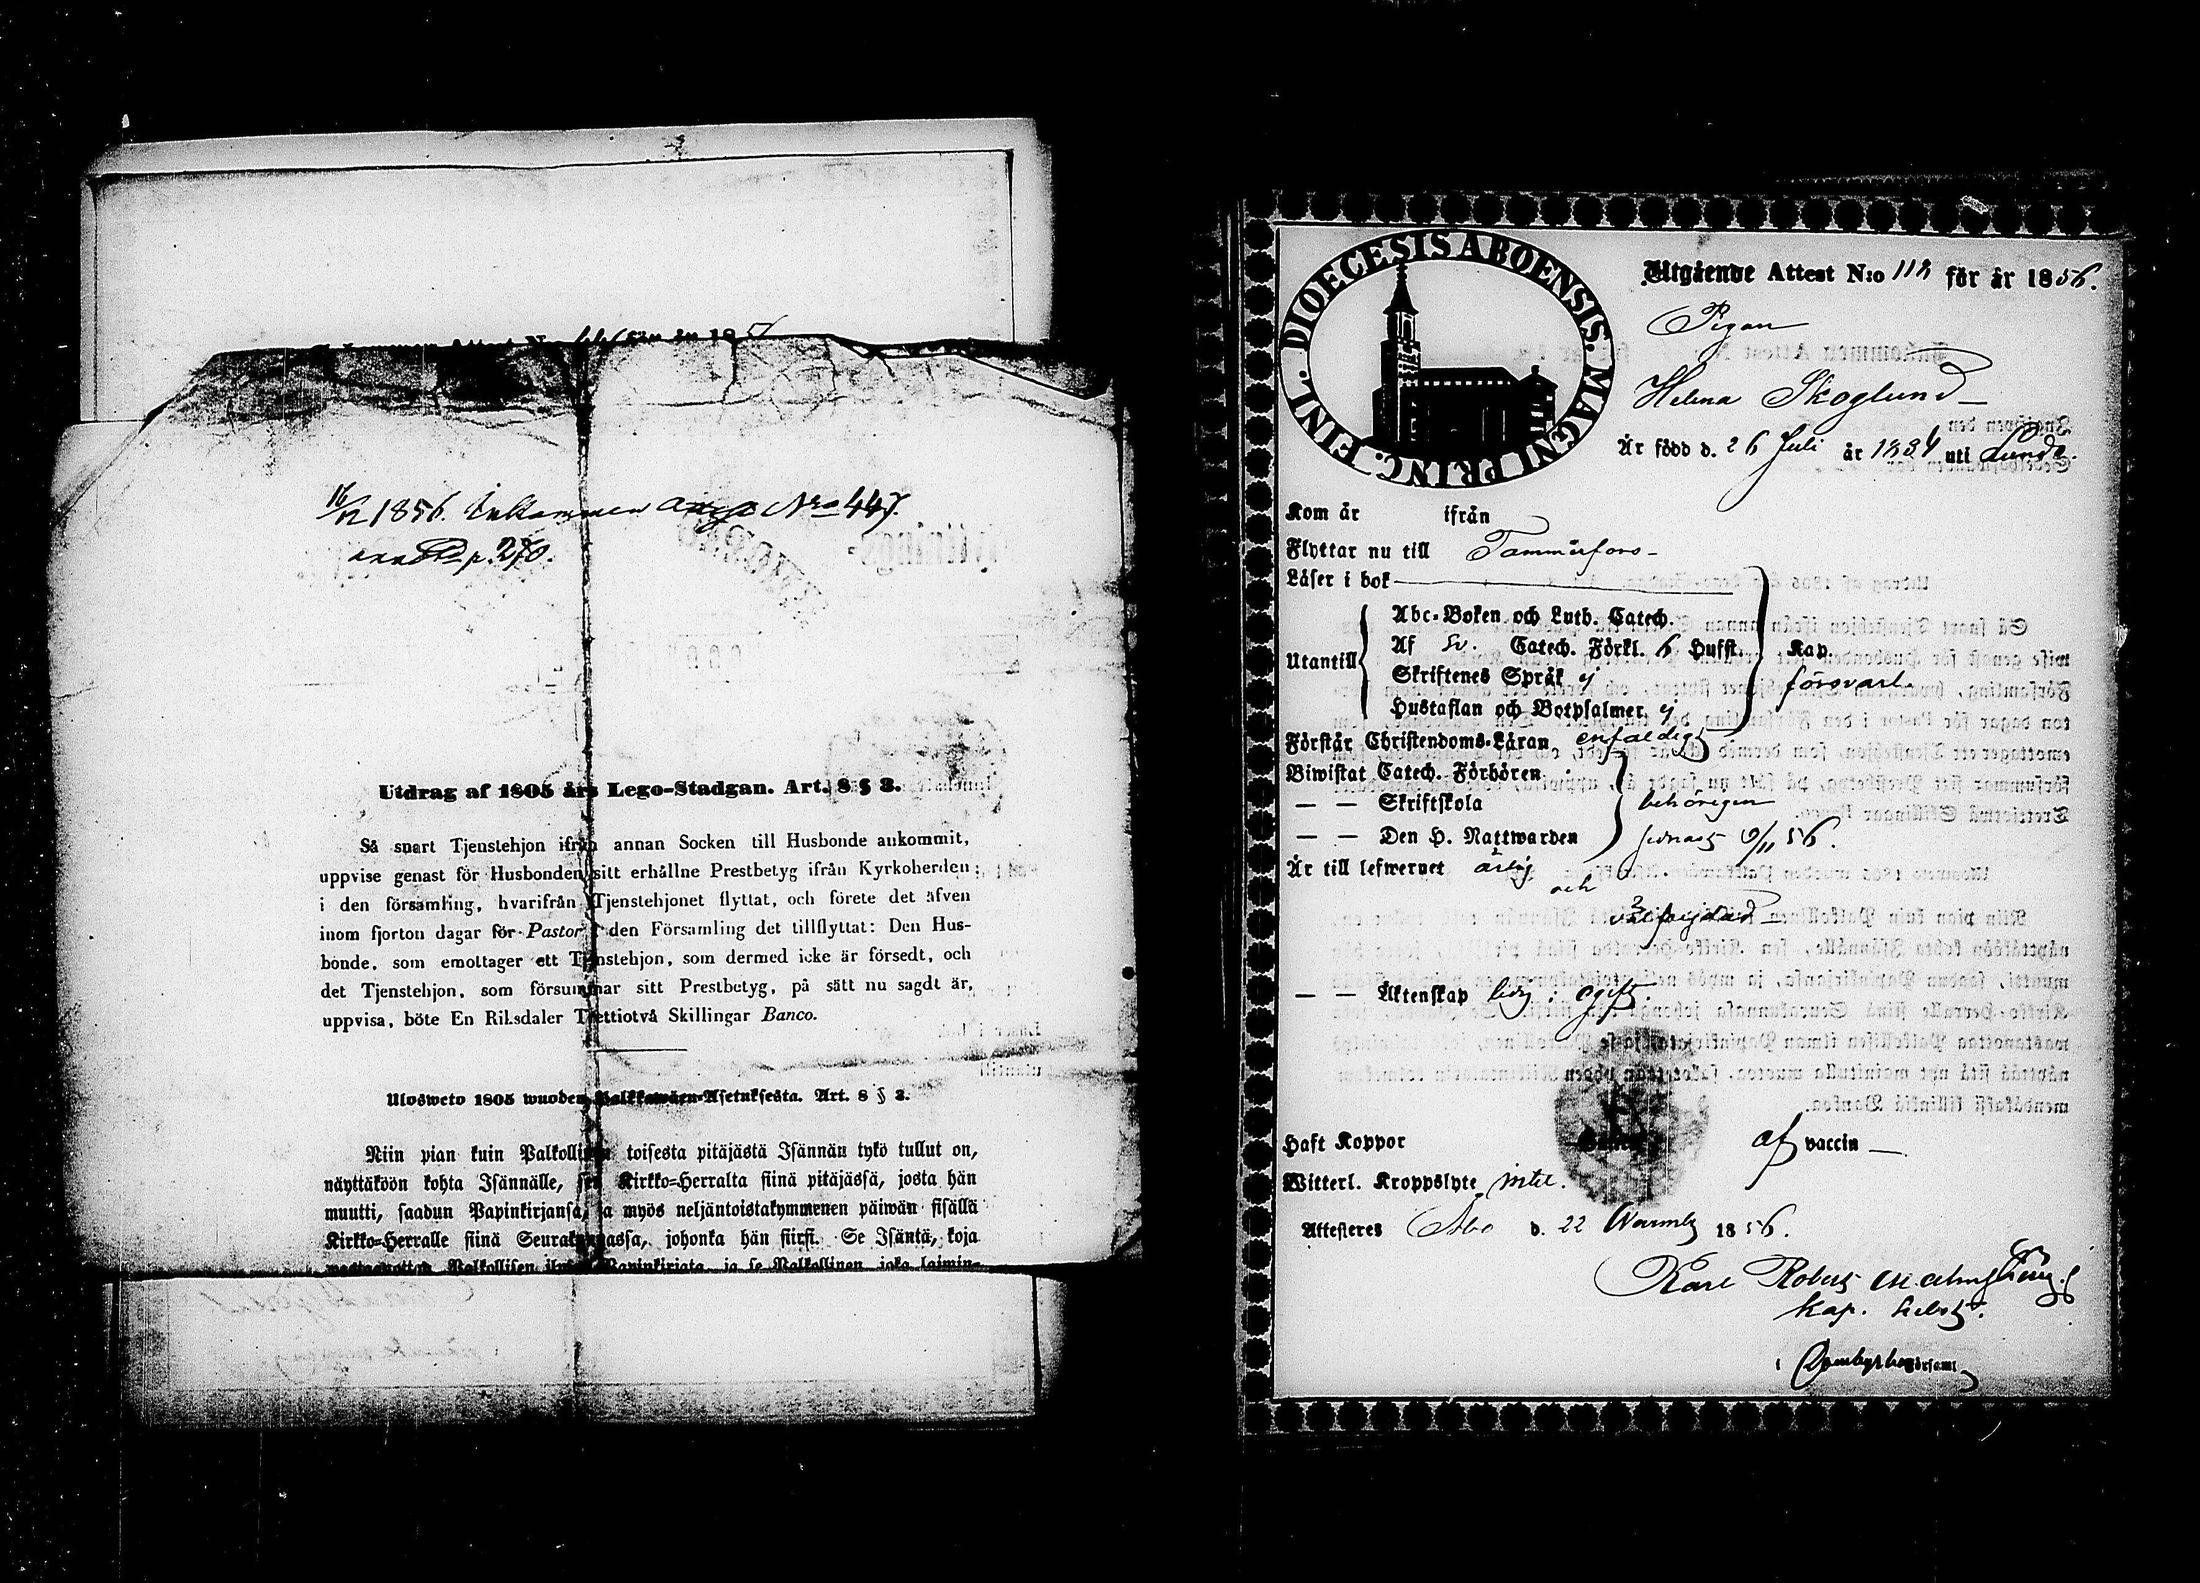 16/12 1856. Inkommen Nro 447.
p. 270.
Utdrag af 1805 års Lego-Stadgan. Art. 8 § 3.
Så snart Tjenstehjon ifrån annan Socken till Husbonde ankommit,
uppvise genast för Husbonden sitt erhållne Prestbetyg ifrån Kyrkoherden
i den församling, hvarifrån Tjenstehjonet flyttat, och förete det äfven
inom fjorton dagar för Pastor i den Församling det tillflyttat: Den Hus-
bonde, som emottager ett Tjenstehjon, som dermed icke är försedt, och
det Tjenstehjon, som försummar sitt Prestbetyg, på sätt nu sagdt är,
uppvisa, böte En Riksdaler Trettiotvå Skillingar Banco.
Ulosweto 1805 wuoden Palkkawäen-Asetuksesta. Art. 8 § 3.
Niin pian kuin Palkollinen toisesta pitäjästä Isännän tykö tullut on,
näyttäköön kohta Isännälle, sen Kirkko-Herralta siinä pitäjässä, josta hän
muutti, saadun Papinkirjansa, ja myös neljäntoistakymmenen päiwän sisällä
Kirkko-Herralle siinä Seurakunnassa, johonka hän siirsi. Se Isäntä, koja
wastaanottaa Palkollisen ilman Papinkirjata, ja se Palkollinen, joka laimin-
DIOECESIS ABOENSIS. MAGNI PRINC. FINL.
Utgående Attest N:o 112 för år 1856.
Pigan
Helena Skoglund
Är född d. 26 Juli år 1834 uti Lundo.
Kom år ifrån
Flyttar nu till Tammerfors
Läser i bok
Utantill
Abc-Boken och Luth. Catech.
Af Sv. Catech. Förkl. 6 Hufst. Kap.
Skriftenes Språk ej försvarl.
Hustaflan och Botpsalmer ej
Förstår Christendoms-Läran enfaldigt
Biwistat Catech. Förhören
— — Skriftskola behörigen
— — Den H. Nattwarden senast 9/11 56.
Är till lefwernet ärlig
och
välfrejdad
— — Äktenskap ledig; ogift.
Haft Koppor af vaccin
Witterl. Kroppslyte intet.
Attesteres Åbo d. 22 Novemb 1856.
Karl Robert
kap.
i Församl